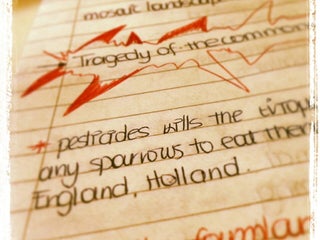 mosaic landscap
Tragedy-of-the-common
* pesticides kills the europ
any sparrows to eat them
England, Holland.